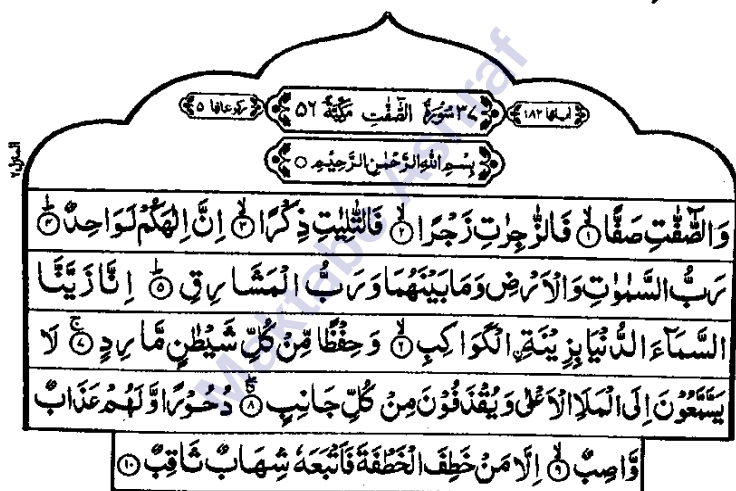 اٰیاتها ۱۸۲ ۳۷ سُوْرَةُ الصّٰٓفّٰتِ مَكِّیَّةٌ ۵۶ رکوعاتها ۵
بِسْمِ اللهِ الرَّحْمٰنِ الرَّحِیْمِ ○
المنزل ۶
وَالصّٰٓفّٰتِ صَفًّا ۙ﴿۱﴾ فَالزّٰجِرٰتِ زَجْرًا ۙ﴿۲﴾ فَالتّٰلِیٰتِ ذِكْرًا ۙ﴿۳﴾ اِنَّ اِلٰهَكُمْ لَوَاحِدٌ ؕ﴿۴﴾
رَبُّ السَّمٰوٰتِ وَالْاَرْضِ وَمَا بَیْنَهُمَا وَرَبُّ الْمَشَارِقِ ؕ﴿۵﴾ اِنَّا زَیَّنَّا
السَّمَآءَ الدُّنْیَا بِزِیْنَةِ ِ۟الْكَوَاكِبِ ۙ﴿۶﴾ وَحِفْظًا مِّنْ كُلِّ شَیْطٰنٍ مَّارِدٍ ۚ﴿۷﴾ لَا
یَسَّمَّعُوْنَ اِلَی الْمَلَاِ الْاَعْلٰی وَیُقْذَفُوْنَ مِنْ كُلِّ جَانِبٍ ۖ﴿۸﴾ دُحُوْرًا وَّلَهُمْ عَذَابٌ
وَّاصِبٌ ۙ﴿۹﴾ اِلَّا مَنْ خَطِفَ الْخَطْفَةَ فَاَتْبَعَهٗ شِهَابٌ ثَاقِبٌ ﴿۱۰﴾
Maktaba Ashraf